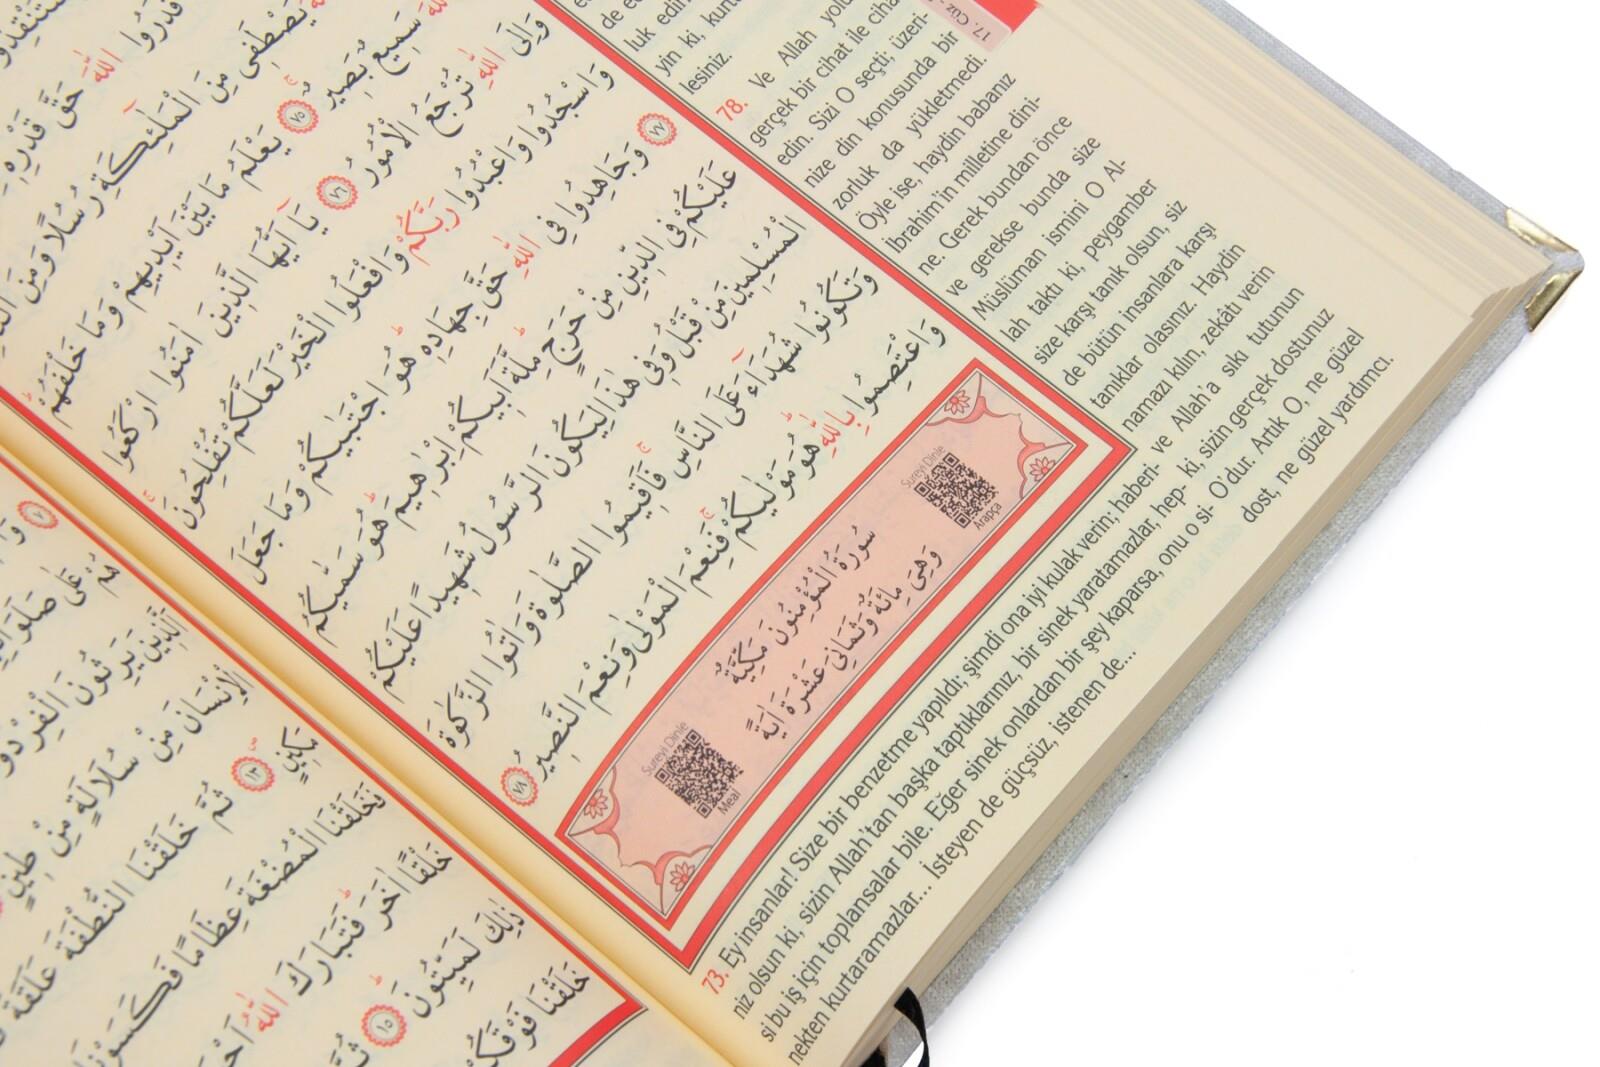 قَدَرُوا اللّٰهَ حَقَّ قَدْرِهِ
يَصْطَفِى مِنَ الْمَلٰٓئِكَةِ رُسُلًا وَمِنَ
سَمِيعٌ بَصِيرٌ ﴿٧٥﴾ يَعْلَمُ مَا بَيْنَ اَيْدِيهِمْ وَمَا خَلْفَهُمْ
وَاِلَى اللّٰهِ تُرْجَعُ الْاُمُورُ ﴿٧٦﴾ يَٓا اَيُّهَا الَّذِينَ اٰمَنُوا ارْكَعُوا
وَاسْجُدُوا وَاعْبُدُوا رَبَّكُمْ وَافْعَلُوا الْخَيْرَ لَعَلَّكُمْ تُفْلِحُونَ
﴿٧٧﴾ وَجَاهِدُوا فِى اللّٰهِ حَقَّ جِهَادِهِ هُوَ اجْتَبٰيكُمْ وَمَا جَعَلَ
عَلَيْكُمْ فِى الدِّينِ مِنْ حَرَجٍ مِلَّةَ اَبِيكُمْ اِبْرٰهِيمَ هُوَ سَمّٰيكُمُ
الْمُسْلِمِينَ مِنْ قَبْلُ وَفِى هٰذَا لِيَكُونَ الرَّسُولُ شَهِيدًا عَلَيْكُمْ
وَتَكُونُوا شُهَدَٓاءَ عَلَى النَّاسِ فَاَقِيمُوا الصَّلٰوةَ وَاٰتُوا الزَّكٰوةَ
وَاعْتَصِمُوا بِاللّٰهِ هُوَ مَوْلٰيكُمْ فَنِعْمَ الْمَوْلٰى وَنِعْمَ النَّصِيرُ ﴿٧٨﴾
سُورَةُ الْمُؤْمِنُونَ مَكِّيَّةٌ
وَهِىَ مِائَةٌ وَثَمَانِىَ عَشْرَةَ اٰيَةً
Sureyi Dinle
Arapça
Sureyi Dinle
Meal
17. Cüz
luk edin
yin ki, kurt
lesiniz.
78. Ve Allah yolu
gerçek bir cihat ile ciha
edin. Sizi O seçti; üzeri-
nize din konusunda bir
zorluk da yükletmedi.
Öyle ise, haydin babanız
İbrahim'in milletine dini-
ne. Gerek bundan önce
ve gerekse bunda size
Müslüman ismini O Al-
lah taktı ki, peygamber
size karşı tanık olsun, siz
de bütün insanlara karşı
tanıklar olasınız. Haydin
namazı kılın, zekâtı verin
ve Allah'a sıkı tutunun
ki, sizin gerçek dostunuz
O'dur. Artık O, ne güzel
dost, ne güzel yardımcı.
73. Ey insanlar! Size bir benzetme yapıldı; şimdi ona iyi kulak verin; haberi-
niz olsun ki, sizin Allah'tan başka taptıklarınız, bir sinek yaratamazlar, hep-
si bu iş için toplansalar bile. Eğer sinek onlardan bir şey kaparsa, onu o si-
nekten kurtaramazlar... İsteyen de güçsüz, istenen de...
هُمْ عَلٰى صَلَوَاتِهِمْ
الَّذِينَ يَرِثُونَ الْفِرْدَوْسَ
الْاِنْسَانَ مِنْ سُلَالَةٍ مِنْ طِينٍ
مَكِينٍ ﴿١٣﴾ ثُمَّ خَلَقْنَا النُّطْفَةَ عَلَقَةً
فَخَلَقْنَا الْمُضْغَةَ عِظَامًا فَكَسَوْنَا
خَلْقًا اٰخَرَ فَتَبَارَكَ اللّٰهُ
ذٰلِكَ لَمَيِّتُونَ ﴿١٥﴾ ثُمَّ
خَلَقْنَا فَوْقَكُمْ